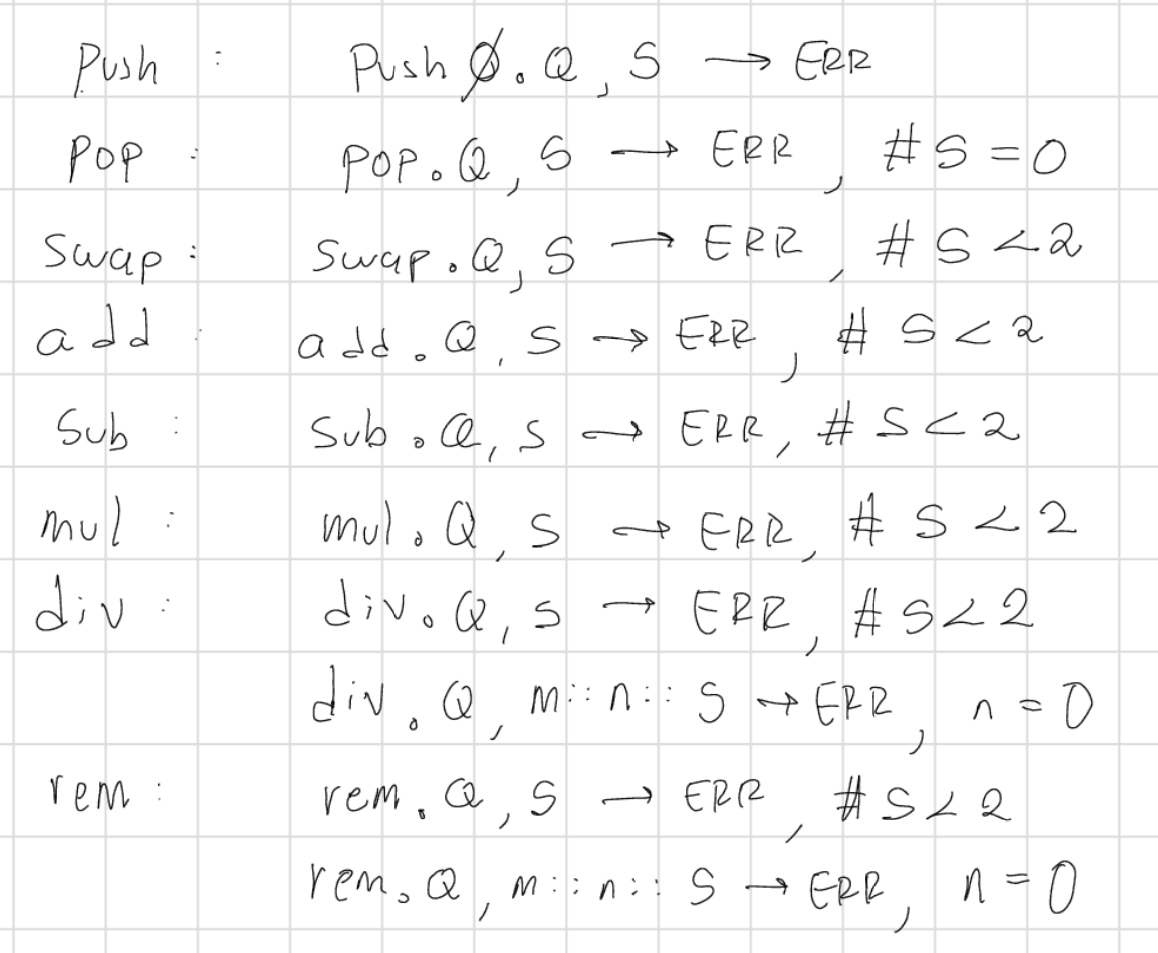 Push : Push ∅.Q, S → ERR
POP : POP.Q, S → ERR, #S=0
Swap : Swap.Q, S → ERR, #S<2
add : add.Q, S → ERR, #S<2
Sub : Sub.Q, S → ERR, #S<2
mul : mul.Q, S → ERR, #S<2
div : div.Q, S → ERR, #S<2
div.Q, m::n::S → ERR, n=0
rem : rem.Q, S → ERR, #S<2
rem.Q, m::n::S → ERR, n=0